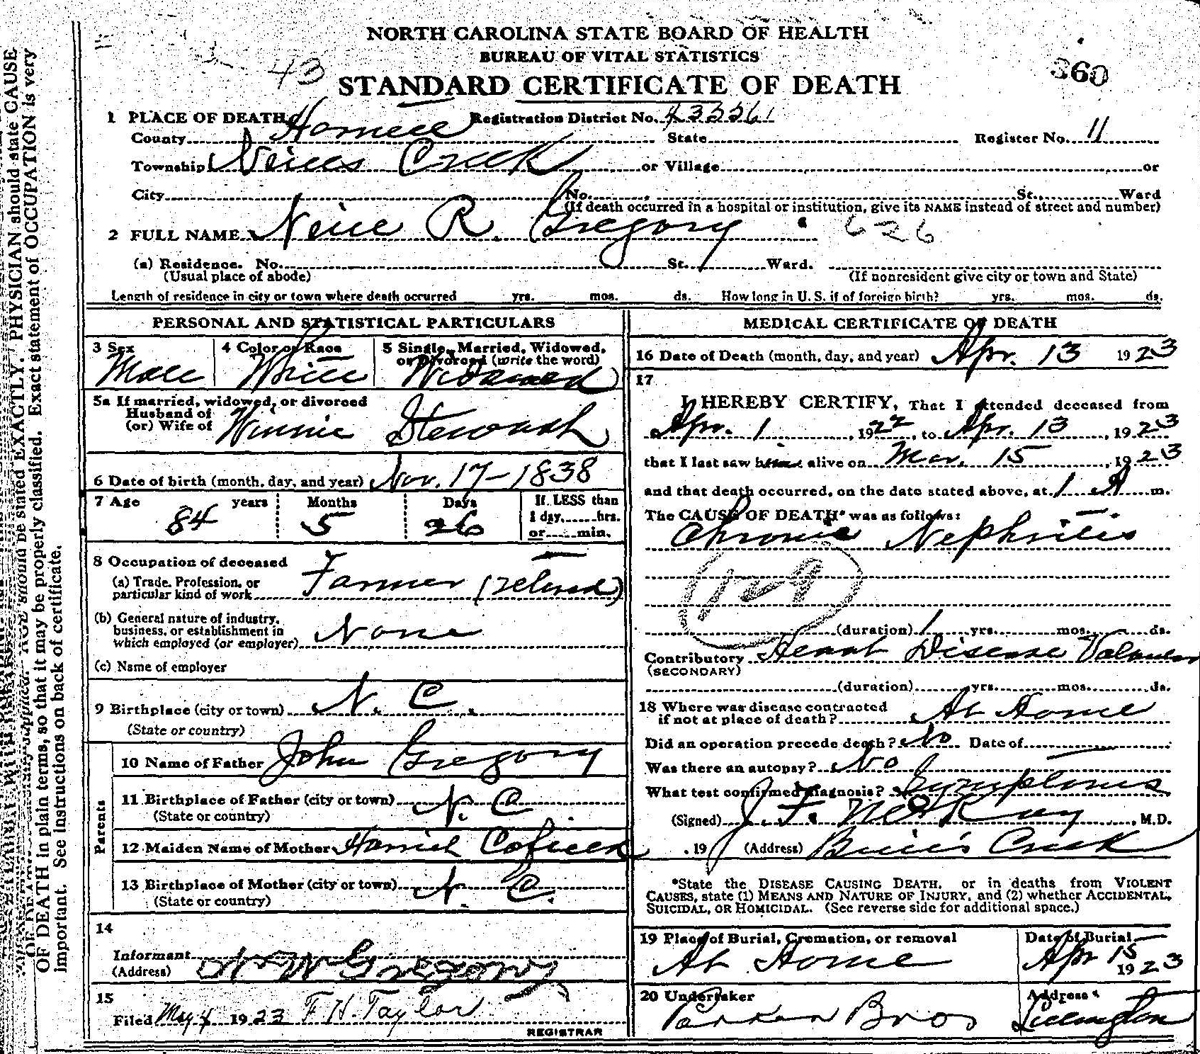 NORTH CAROLINA STATE BOARD OF HEALTH
BUREAU OF VITAL STATISTICS
43
STANDARD CERTIFICATE OF DEATH
360
1 PLACE OF DEATH Registration District No.
County Harnett State Register No. 11
Township Neills Creek or Village or
City No. St. Ward
(If death occurred in a hospital or institution, give its NAME instead of street and number)
2 FULL NAME Neill R. Gregory 626
(a) Residence. No. St. Ward.
(Usual place of abode) (If nonresident give city or town and State)
Length of residence in city or town where death occurred yrs. mos. ds. How long in U. S. if of foreign birth? yrs. mos. ds.
PERSONAL AND STATISTICAL PARTICULARS
3 Sex 4 Color or Race 5 Single, Married, Widowed, or Divorced (write the word)
Male White Widowed
5a If married, widowed, or divorced
Husband of
(or) Wife of Winnie
6 Date of birth (month, day, and year) Nov. 17-1838
7 Age years Months Days If LESS than
1 day, hrs.
or min.
84 5 26
8 Occupation of deceased
(a) Trade, Profession, or
particular kind of work Farmer (retired)
(b) General nature of industry,
business, or establishment in
which employed (or employer) None
(c) Name of employer
9 Birthplace (city or town) N. C.
(State or country)
Parents
10 Name of Father John Gregory
11 Birthplace of Father (city or town) N. C.
(State or country)
12 Maiden Name of Mother
13 Birthplace of Mother (city or town) N. C.
(State or country)
14
Informant
(Address) Gregory
15
Filed May 1923 F H. Taylor
REGISTRAR
MEDICAL CERTIFICATE OF DEATH
16 Date of Death (month, day, and year) Apr. 13 1923
17
I HEREBY CERTIFY, That I attended deceased from
Apr. 1, 1922, to Apr. 13, 1923
that I last saw him alive on Mar. 15 1923
and that death occurred, on the date stated above, at 1 A m.
The CAUSE OF DEATH* was as follows:
Chronic Nephritis
129
(duration) 1 yrs. mos. ds.
Contributory Heart Disease
(SECONDARY)
(duration) yrs. mos. ds.
18 Where was disease contracted
if not at place of death? At Home
Did an operation precede death? No Date of
Was there an autopsy? No
What test confirmed diagnosis? Symptoms
(Signed) J. F. McKay, M.D.
, 19 (Address) Buie's Creek
*State the DISEASE CAUSING DEATH, or in deaths from VIOLENT
CAUSES, state (1) MEANS AND NATURE OF INJURY, and (2) whether ACCIDENTAL,
SUICIDAL, OR HOMICIDAL. (See reverse side for additional space.)
19 Place of Burial, Cremation, or removal Date of Burial
At Home Apr 15 1923
20 Undertaker Address
Parker Bros Lillington
AGE should be stated EXACTLY. PHYSICIAN should state CAUSE
OF DEATH in plain terms, so that it may be properly classified. Exact statement of OCCUPATION is very
important. See instructions on back of certificate.